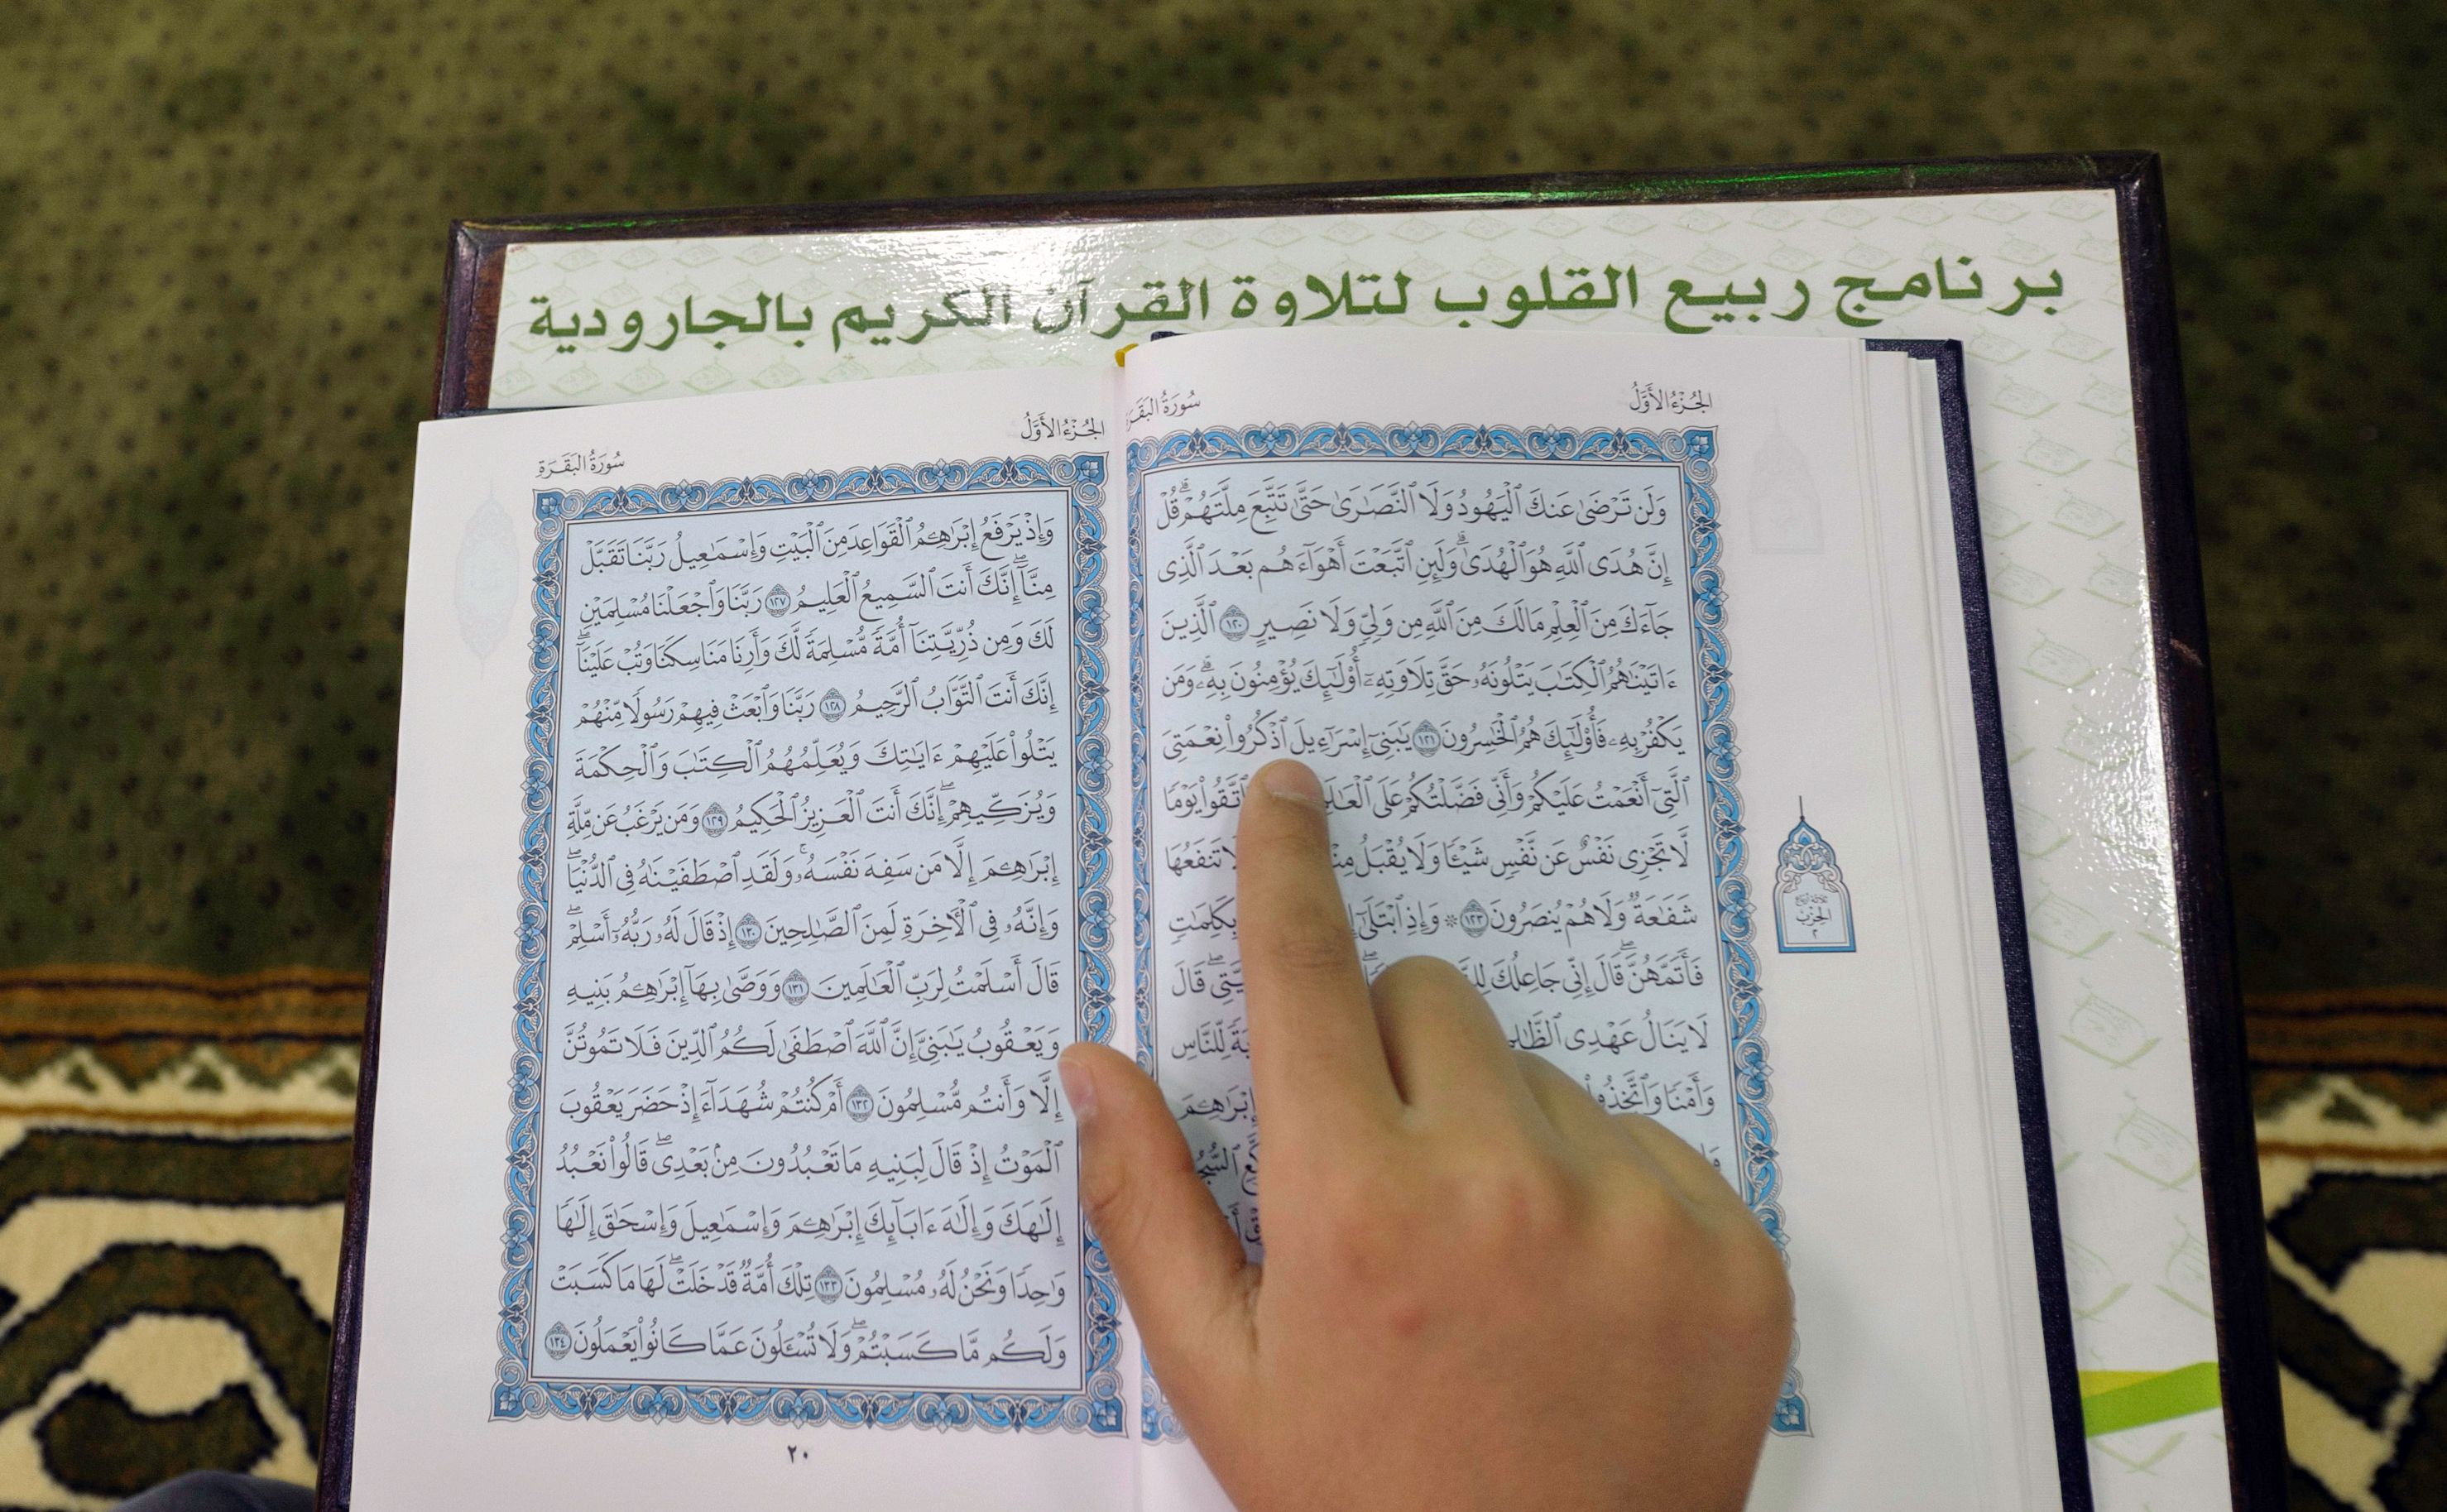 برنامج ربيع القلوب لتلاوة القرآن الكريم بالجارودية
الجُزْءُ الأَوَّلُ
سُورَةُ البَقَرَة
وَلَن تَرْضَىٰ عَنكَ ٱلْيَهُودُ وَلَا ٱلنَّصَٰرَىٰ حَتَّىٰ تَتَّبِعَ مِلَّتَهُمْ ۗ قُلْ
إِنَّ هُدَى ٱللَّهِ هُوَ ٱلْهُدَىٰ ۗ وَلَئِنِ ٱتَّبَعْتَ أَهْوَآءَهُم بَعْدَ ٱلَّذِى
جَآءَكَ مِنَ ٱلْعِلْمِ مَا لَكَ مِنَ ٱللَّهِ مِن وَلِىٍّ وَلَا نَصِيرٍ ١٢٠ ٱلَّذِينَ
ءَاتَيْنَٰهُمُ ٱلْكِتَٰبَ يَتْلُونَهُۥ حَقَّ تِلَاوَتِهِۦٓ أُو۟لَٰٓئِكَ يُؤْمِنُونَ بِهِۦ ۗ وَمَن
يَكْفُرْ بِهِۦ فَأُو۟لَٰٓئِكَ هُمُ ٱلْخَٰسِرُونَ ١٢١ يَٰبَنِىٓ إِسْرَٰٓءِيلَ ٱذْكُرُوا۟ نِعْمَتِىَ
ٱلَّتِىٓ أَنْعَمْتُ عَلَيْكُمْ وَأَنِّى فَضَّلْتُكُمْ عَلَى ٱتَّقُوا۟ يَوْمًا
لَّا تَجْزِى نَفْسٌ عَن نَّفْسٍ شَيْـًٔا وَلَا يُقْبَلُ تَنفَعُهَا
شَفَٰعَةٌ وَلَا هُمْ يُنصَرُونَ ١٢٣ ۞ وَإِذِ ٱبْتَلَىٰٓ بِكَلِمَٰتٍ
فَأَتَمَّهُنَّ ۖ قَالَ إِنِّى جَاعِلُكَ قَالَ
لَا يَنَالُ عَهْدِى لِّلنَّاسِ
وَأَمْنًا وَٱتَّخِذُوا۟ إِبْرَٰهِـۧمَ
الحِزْب
٢
الجُزْءُ الأَوَّلُ
سُورَةُ البَقَرَةِ
وَإِذْ يَرْفَعُ إِبْرَٰهِـۧمُ ٱلْقَوَاعِدَ مِنَ ٱلْبَيْتِ وَإِسْمَٰعِيلُ رَبَّنَا تَقَبَّلْ
مِنَّآ ۖ إِنَّكَ أَنتَ ٱلسَّمِيعُ ٱلْعَلِيمُ ١٢٧ رَبَّنَا وَٱجْعَلْنَا مُسْلِمَيْنِ
لَكَ وَمِن ذُرِّيَّتِنَآ أُمَّةً مُّسْلِمَةً لَّكَ وَأَرِنَا مَنَاسِكَنَا وَتُبْ عَلَيْنَآ ۖ
إِنَّكَ أَنتَ ٱلتَّوَّابُ ٱلرَّحِيمُ ١٢٨ رَبَّنَا وَٱبْعَثْ فِيهِمْ رَسُولًا مِّنْهُمْ
يَتْلُوا۟ عَلَيْهِمْ ءَايَٰتِكَ وَيُعَلِّمُهُمُ ٱلْكِتَٰبَ وَٱلْحِكْمَةَ
وَيُزَكِّيهِمْ ۖ إِنَّكَ أَنتَ ٱلْعَزِيزُ ٱلْحَكِيمُ ١٢٩ وَمَن يَرْغَبُ عَن مِّلَّةِ
إِبْرَٰهِـۧمَ إِلَّا مَن سَفِهَ نَفْسَهُۥ ۚ وَلَقَدِ ٱصْطَفَيْنَٰهُ فِى ٱلدُّنْيَا ۖ
وَإِنَّهُۥ فِى ٱلْءَاخِرَةِ لَمِنَ ٱلصَّٰلِحِينَ ١٣٠ إِذْ قَالَ لَهُۥ رَبُّهُۥٓ أَسْلِمْ ۖ
قَالَ أَسْلَمْتُ لِرَبِّ ٱلْعَٰلَمِينَ ١٣١ وَوَصَّىٰ بِهَآ إِبْرَٰهِـۧمُ بَنِيهِ
وَيَعْقُوبُ يَٰبَنِىَّ إِنَّ ٱللَّهَ ٱصْطَفَىٰ لَكُمُ ٱلدِّينَ فَلَا تَمُوتُنَّ
إِلَّا وَأَنتُم مُّسْلِمُونَ ١٣٢ أَمْ كُنتُمْ شُهَدَآءَ إِذْ حَضَرَ يَعْقُوبَ
ٱلْمَوْتُ إِذْ قَالَ لِبَنِيهِ مَا تَعْبُدُونَ مِنۢ بَعْدِى ۖ قَالُوا۟ نَعْبُدُ
إِلَٰهَكَ وَإِلَٰهَ ءَابَآئِكَ إِبْرَٰهِـۧمَ وَإِسْمَٰعِيلَ وَإِسْحَٰقَ إِلَٰهًا
وَٰحِدًا وَنَحْنُ لَهُۥ مُسْلِمُونَ ١٣٣ تِلْكَ أُمَّةٌ قَدْ خَلَتْ ۖ لَهَا مَا كَسَبَتْ
وَلَكُم مَّا كَسَبْتُمْ ۖ وَلَا تُسْـَٔلُونَ عَمَّا كَانُوا۟ يَعْمَلُونَ ١٣٤
٢٠